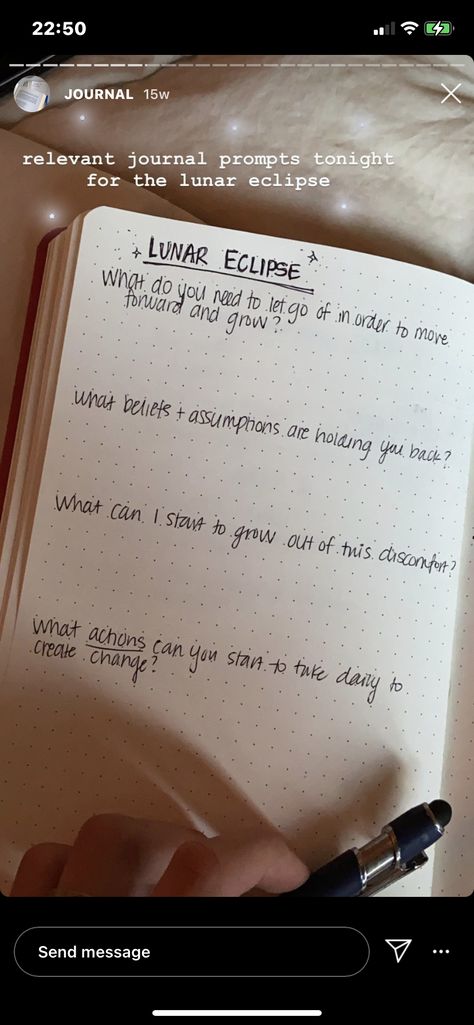 22:50
JOURNAL 15w
relevant journal prompts tonight
for the lunar eclipse
LUNAR ECLIPSE
What do you need to let go of in order to move
forward and grow?
What beliefs + assumptions are holding you back?
What can I start to grow out of this discomfort?
What actions can you start to take daily to
create change?
Send message